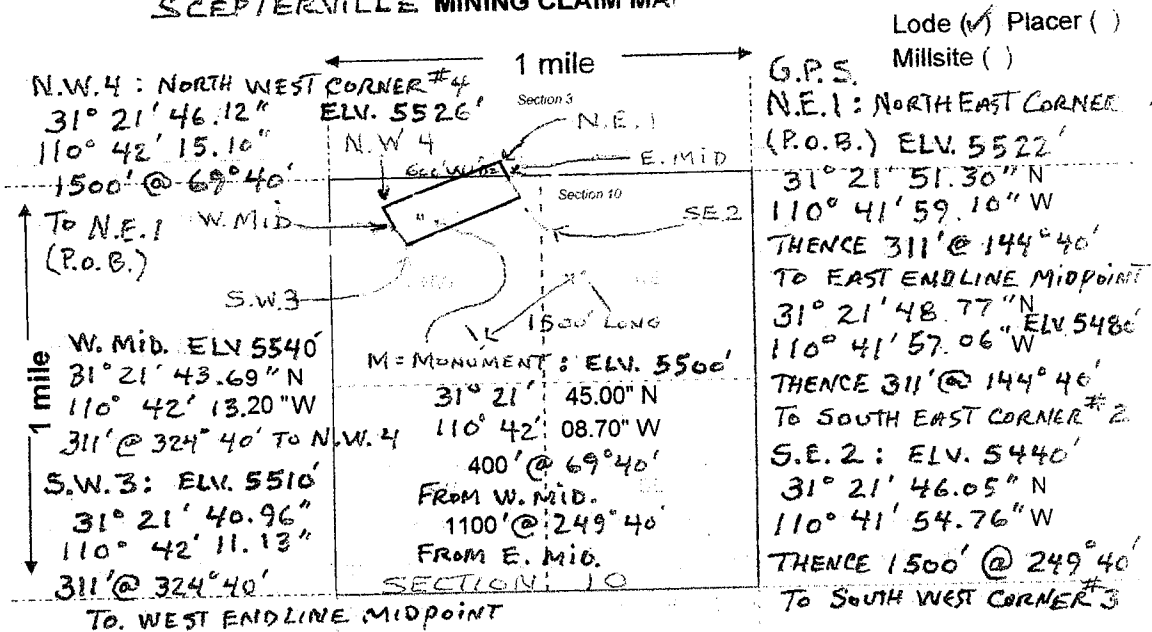 SCEPTERVILLE MINING CLAIM MAP
Lode (✓) Placer ( )
Millsite ( )
1 mile
N.W.4 : NORTH WEST CORNER #4
31° 21' 46.12" ELV. 5526'
110° 42' 15.10"
1500' @ 69°40'
To N.E.1
(P.O.B.)
W. MID. ELV 5540'
31° 21' 43.69" N
110° 42' 13.20" W
311' @ 324° 40' TO N.W. 4
S.W.3: ELV. 5510'
31° 21' 40.96"
110° 42' 11.13"
311' @ 324°40'
To. WEST ENDLINE MIDPOINT
1 mile
Section 3
N.W 4
N.E.1
E. MID
Section 10
W. MID
SE.2
S.W.3
1500' LONG
M = MONUMENT : ELV. 5500'
31° 21' 45.00" N
110° 42' 08.70" W
400' @ 69°40'
FROM W. MID.
1100' @ 249°40'
FROM E. MID.
SECTION 10
G.P.S.
N.E.1 : NORTH EAST CORNER
(P.O.B.) ELV. 5522'
31° 21' 51.30" N
110° 41' 59.10" W
THENCE 311' @ 144°40'
TO EAST ENDLINE MIDPOINT
31° 21' 48.77" N
110° 41' 57.06" W ELV 5480'
THENCE 311' @ 144°40'
TO SOUTH EAST CORNER #2
S.E.2 : ELV. 5440'
31° 21' 46.05" N
110° 41' 54.76" W
THENCE 1500' @ 249°40'
To SOUTH WEST CORNER #3